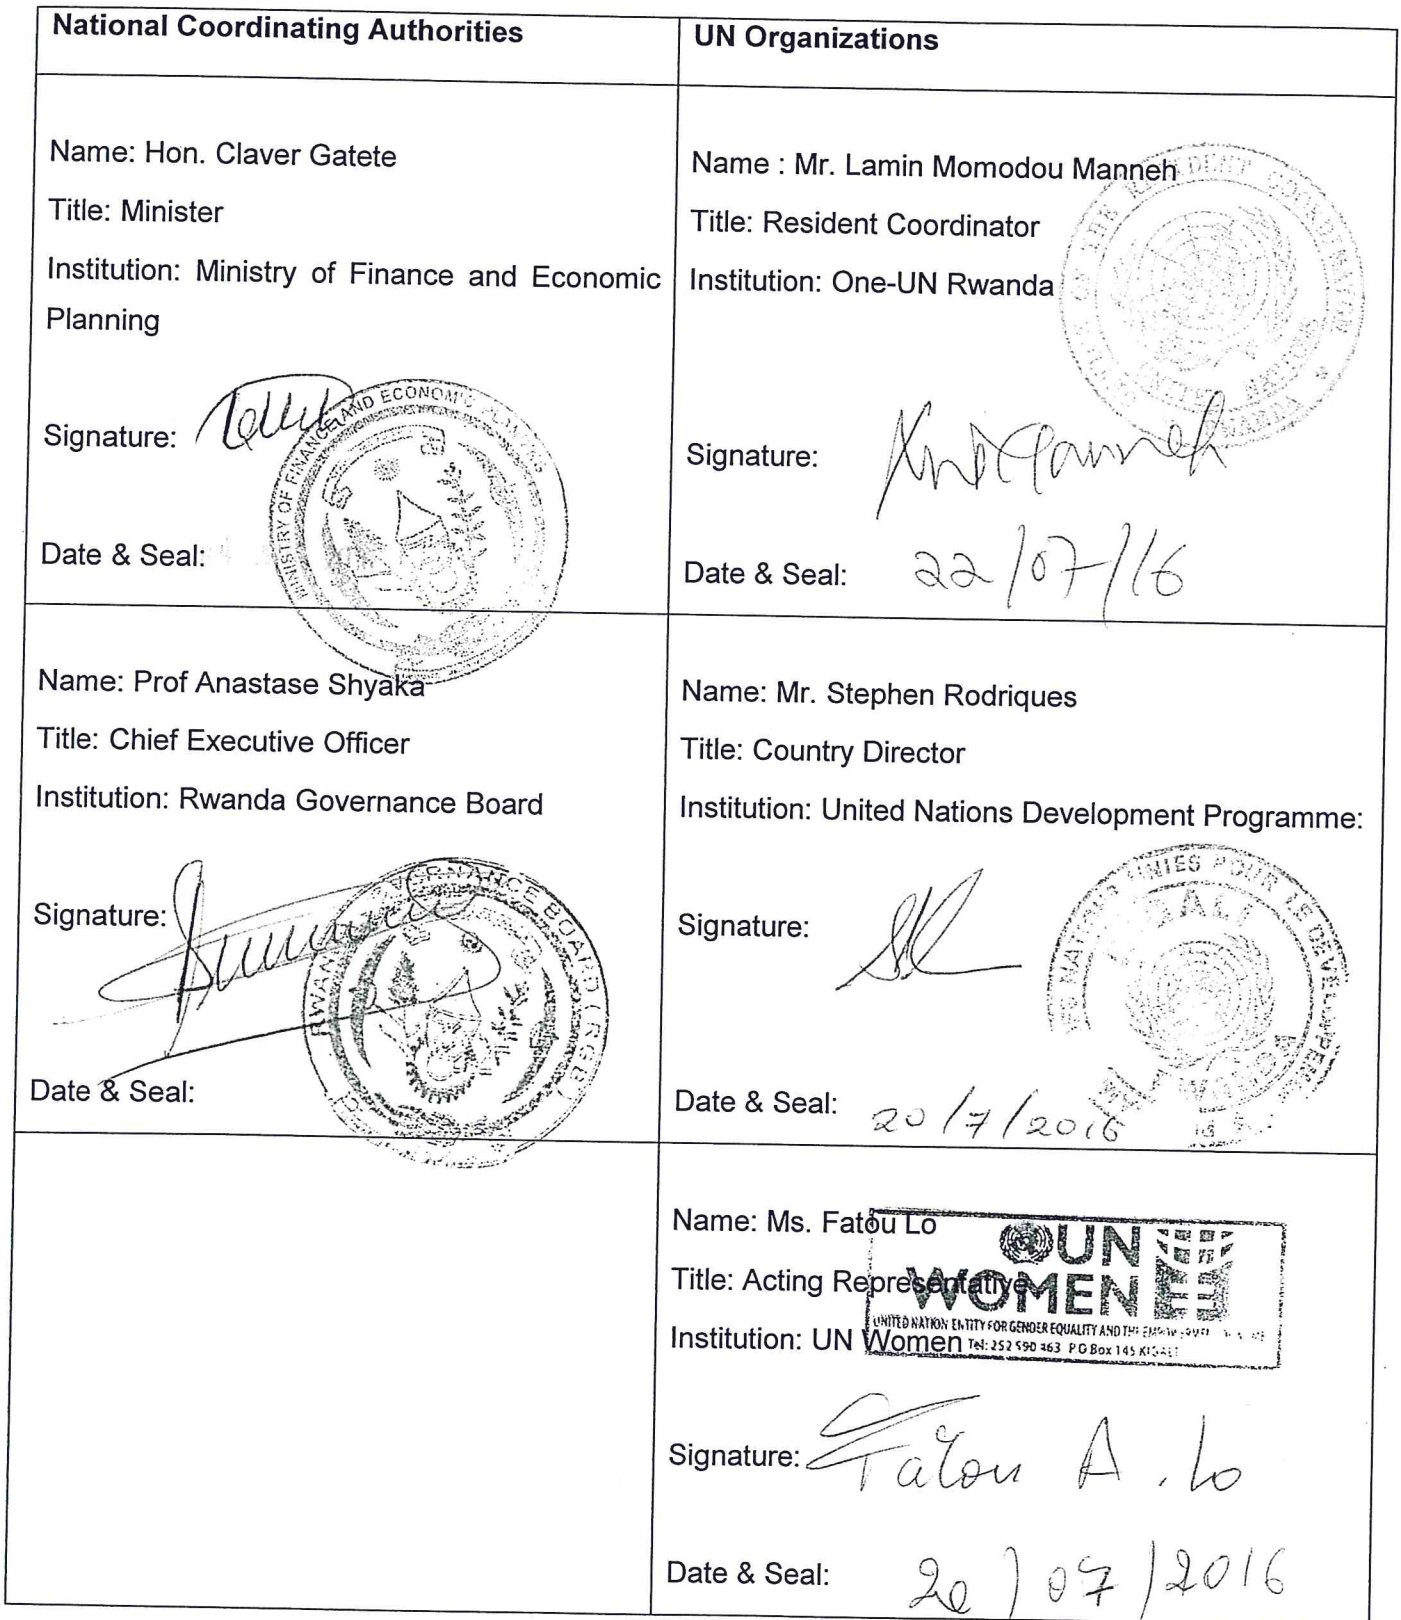 National Coordinating Authorities
UN Organizations
Name: Hon. Claver Gatete
Title: Minister
Institution: Ministry of Finance and Economic
Planning
Signature:
MINISTRY OF FINANCE AND ECONOMIC
Date & Seal:
Name : Mr. Lamin Momodou Manneh
Title: Resident Coordinator
Institution: One-UN Rwanda
OF THE RESIDENT COORDINATOR
UNITED NATIONS
RWANDA
Signature:
Date & Seal: 22/07/16
Name: Prof Anastase Shyaka
Title: Chief Executive Officer
Institution: Rwanda Governance Board
Signature:
RWANDA GOVERNANCE BOARD (RGB)
Date & Seal:
Name: Mr. Stephen Rodriques
Title: Country Director
Institution: United Nations Development Programme:
UNIES POUR LE DEVELOPPEMENT
Signature:
Date & Seal: 20/7/2016
Name: Ms. Fatou Lo
Title: Acting Representative
Institution: UN Women
UN
WOMEN
UNITED NATION ENTITY FOR GENDER EQUALITY AND THE
Tel: 252 590 463 P.O Box 145 KIGALI
Signature: Fatou A. Lo
Date & Seal: 20/07/2016